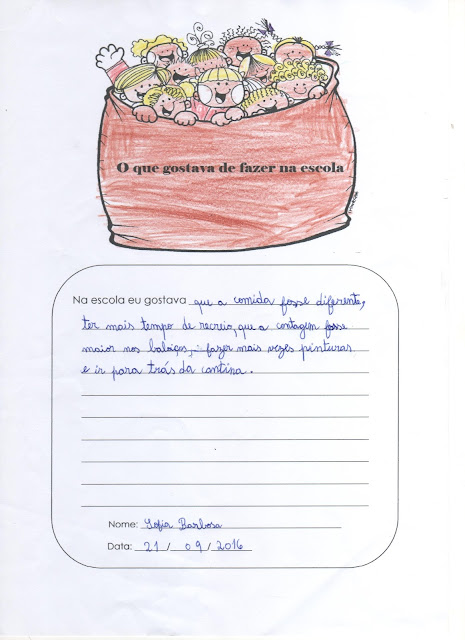 O que gostava de fazer na escola
Na escola eu gostava que a comida fosse diferente,
ter mais tempo de recreio, que a contagem fosse
maior nos baloiços, fazer mais vezes pinturas
e ir para trás da cantina.
Nome: Sofia Barbosa
Data: 21 / 09 / 2016